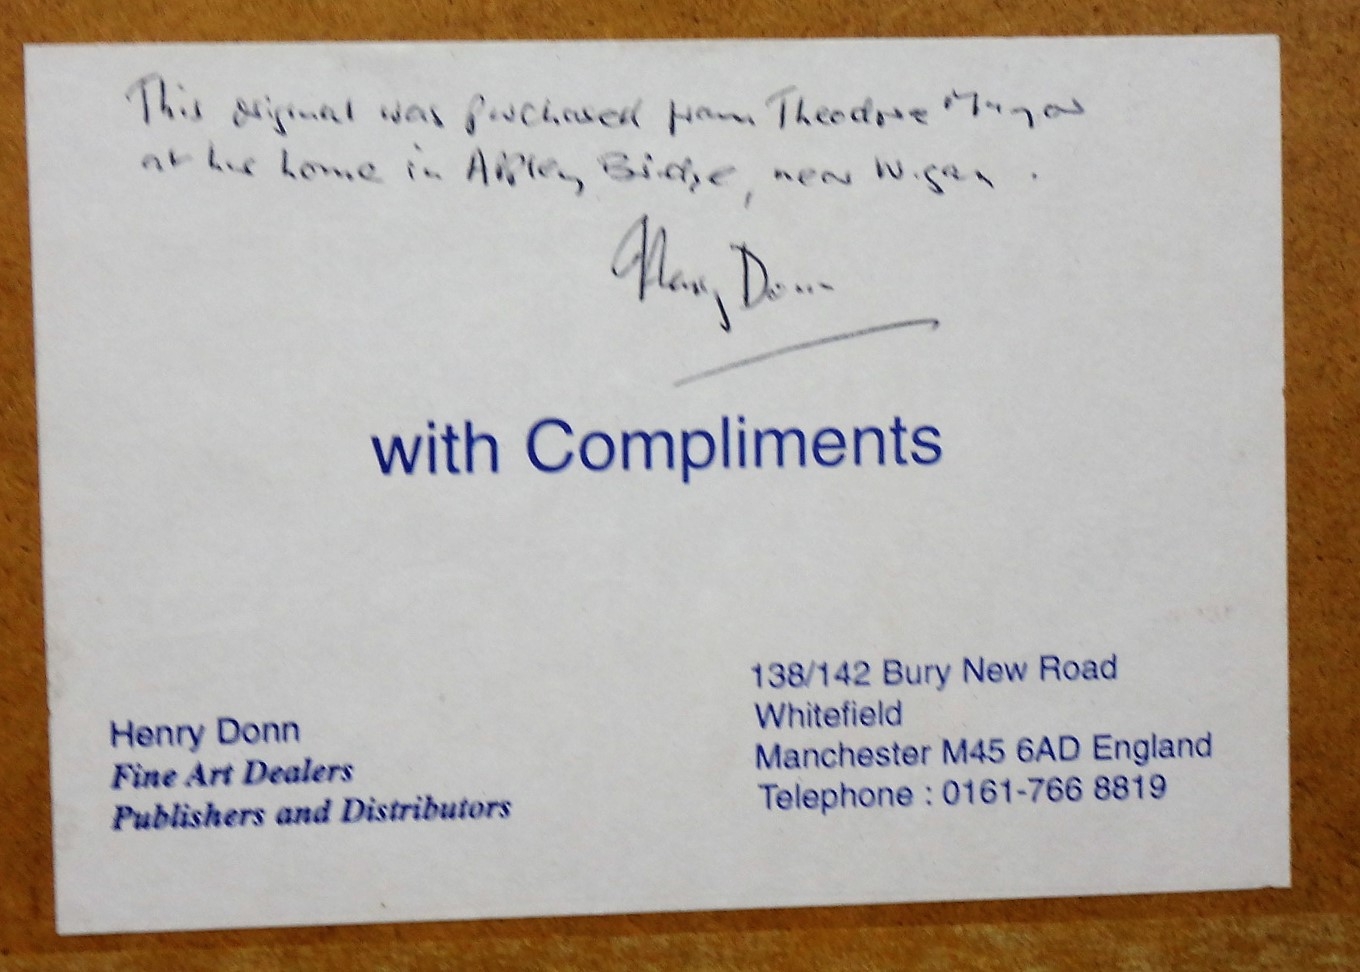 This original was purchased from Theodore Major
at his home in Appley Bridge, near Wigan.
Henry Donn
with Compliments
Henry Donn
Fine Art Dealers
Publishers and Distributors
138/142 Bury New Road
Whitefield
Manchester M45 6AD England
Telephone : 0161-766 8819